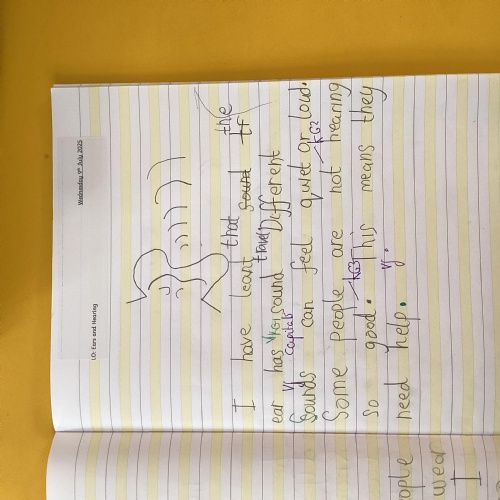 Wednesday 9th July 2025
LO: Ears and Hearing
I have leant that the
ear has sound travel sound tf
KG1 Different
VJ Capitals
Sounds can feel quiet or loud.
KG2
Some people are not hearing
KG3
so good. This means they
VJ.
need help.
ople
wear
I